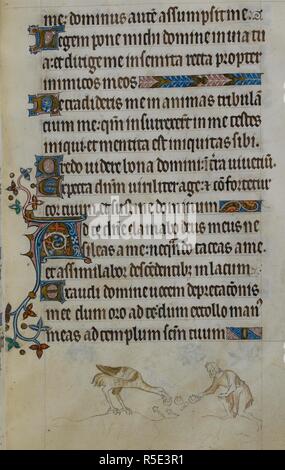 me: dominus autẽ assumpsit me.
Legem pone michi domine in uia tu
a: et dirige me in semita recta propter
inimicos meos
Ne tradideris me in animas tribulãn
cium me: qm̃ insurrexerũt in me testes
iniqui et mentita est iniquitas sibi.
Credo uidere bona domini: in t̃ra uiuẽtiũ.
Expecta dñm uiriliter age: et cõfortetur
cor tuum et sustine dominum
Ad te dñe clamabo deus meus ne
sileas a me: nequñ taceas a me
et assimilabor descendentib; in lacum
Exaudi domine uocem deprecacõnis
mee dum oro ad te: dum extollo man⁹
meas ad templum sc̃m tuum
alamy
Image ID: R5E3R1
www.alamy.com